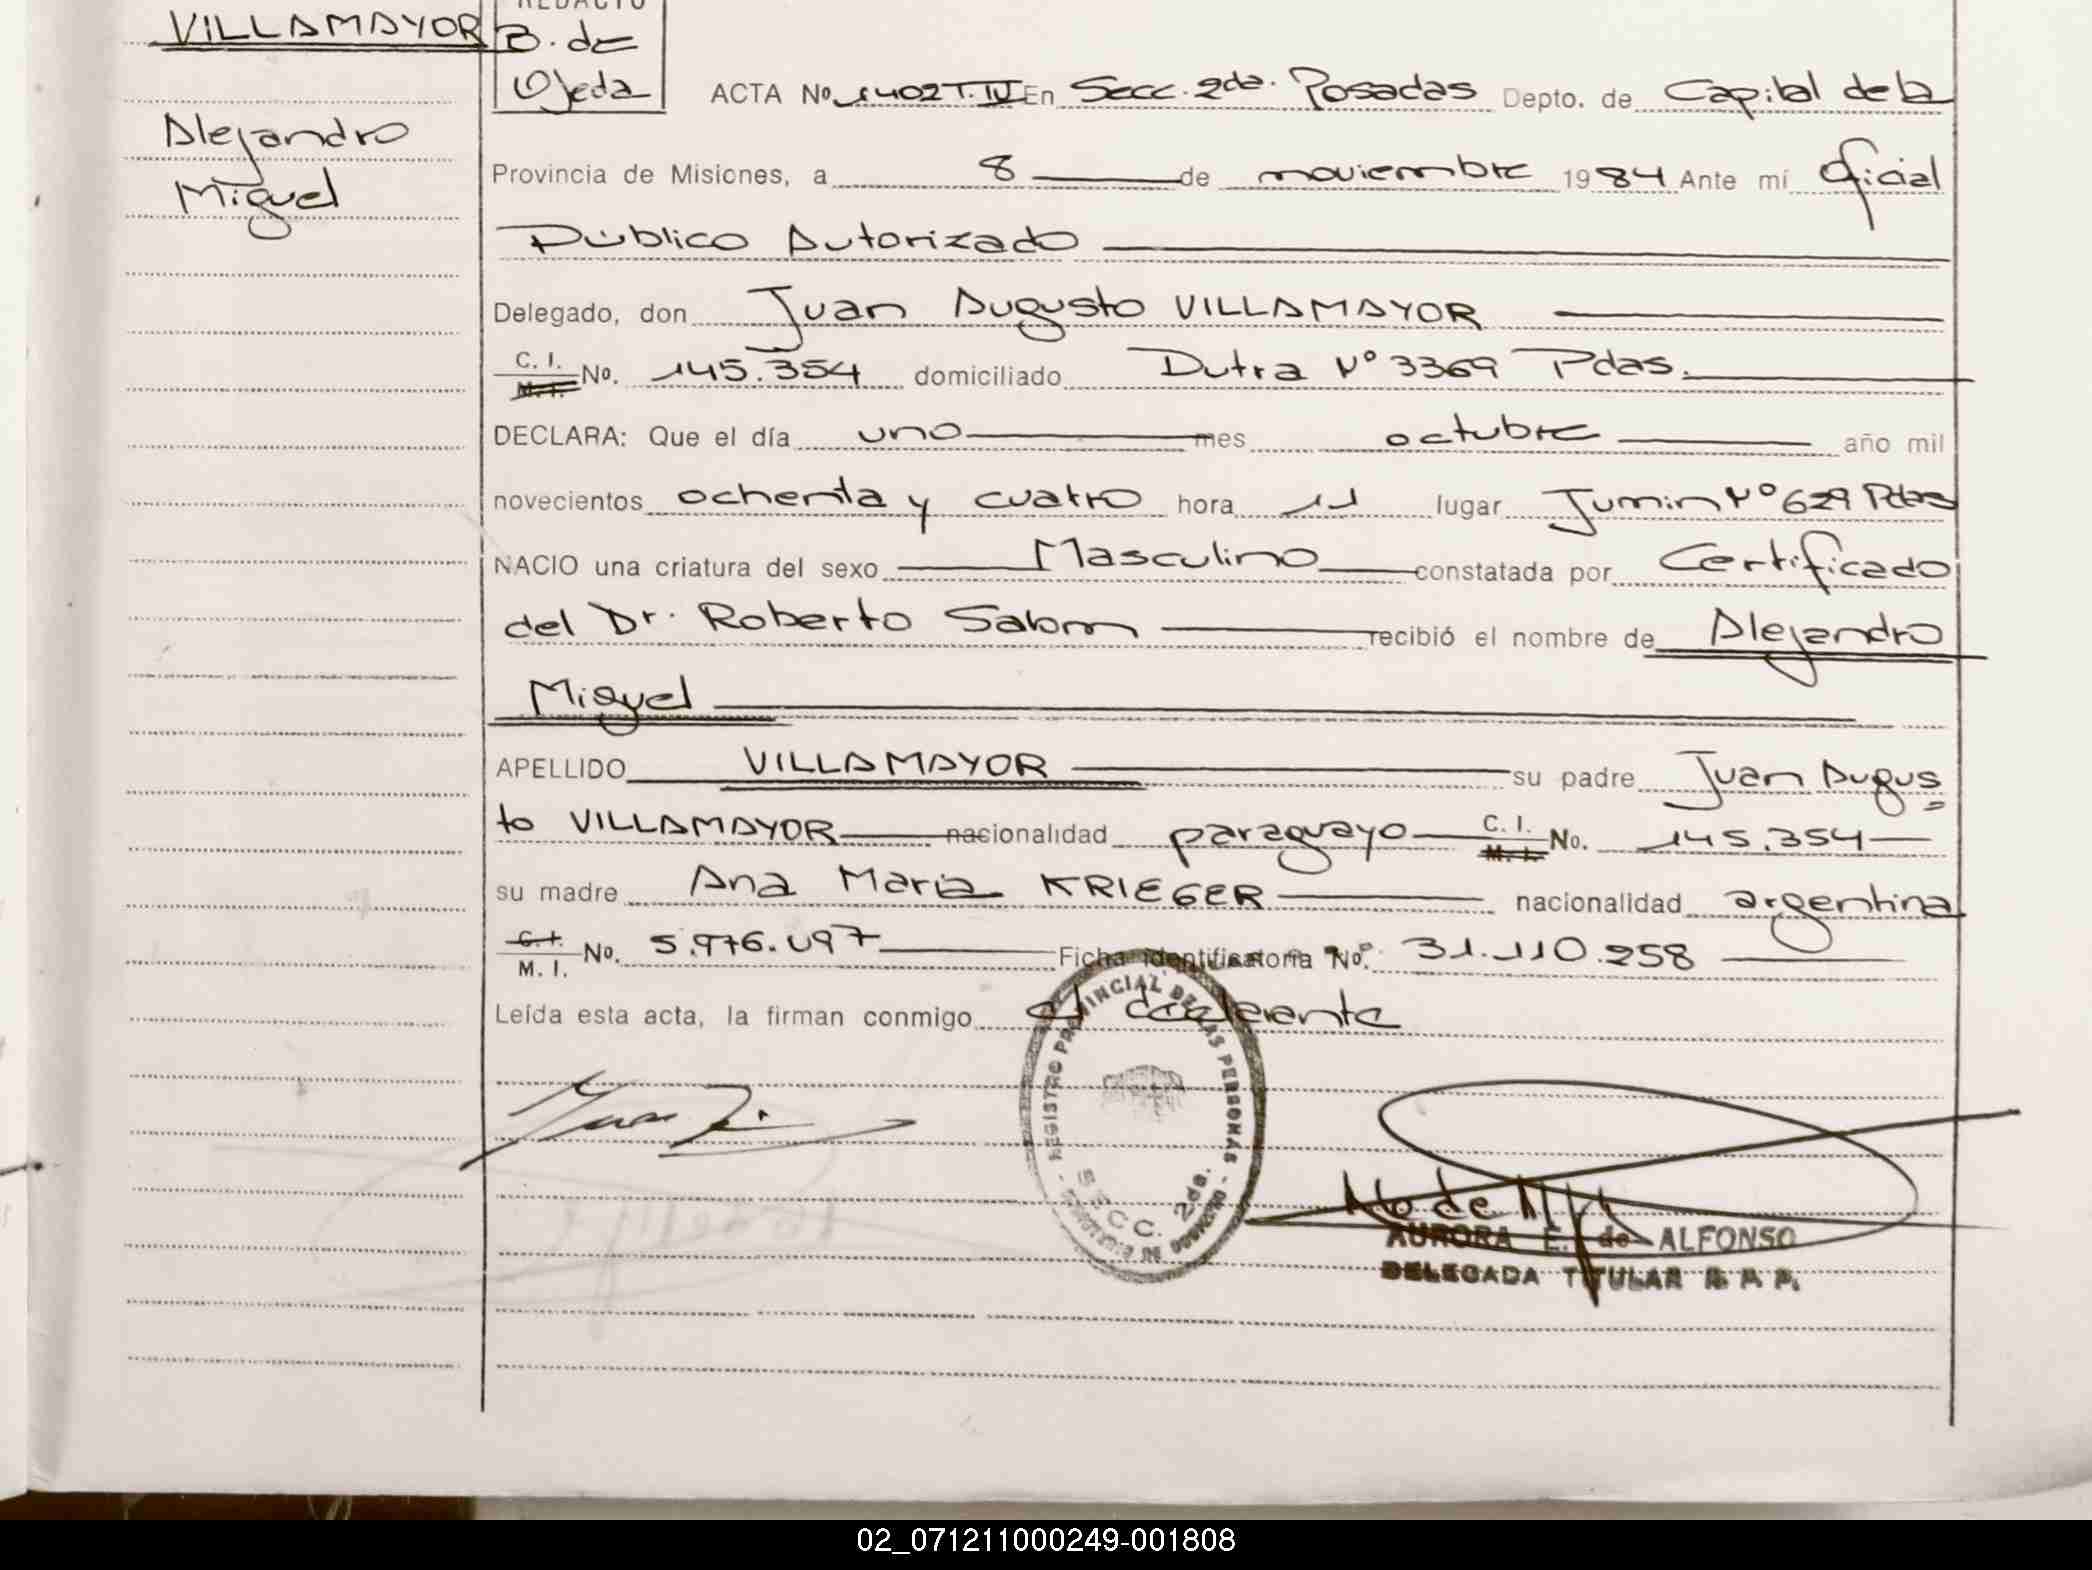 VILLAMAYOR
Alejandro
Miguel
REDACTO
B. de
Ojeda
ACTA No. 1402 T. IV En Secc. 2da. Posadas Depto. de Capital de la
Provincia de Misiones, a 8 de noviembre 1984 Ante mí Oficial
Público Autorizado
Delegado, don Juan Augusto VILLAMAYOR
C. I. M. I. No. 145.354 domiciliado Dutra Nº 3369 Pdas.
DECLARA: Que el día uno mes octubre año mil
novecientos ochenta y cuatro hora 11 lugar Junin Nº 629 Pdas
NACIO una criatura del sexo Masculino constatada por Certificado
del Dr. Roberto Salom recibió el nombre de Alejandro
Miguel
APELLIDO VILLAMAYOR su padre Juan Augus=
to VILLAMAYOR nacionalidad paraguayo C. I. M. I. No. 145.354
su madre Ana Maria KRIEGER nacionalidad argentina
C. I. M. I. No. 5.976.097 Ficha identificatoria No. 31.110.258
Leída esta acta, la firman conmigo el declarante
REGISTRO PROVINCIAL DE LAS PERSONAS
SECC. 2da.
AURORA E. de ALFONSO
DELEGADA TITULAR R. P. P.
02_071211000249-001808